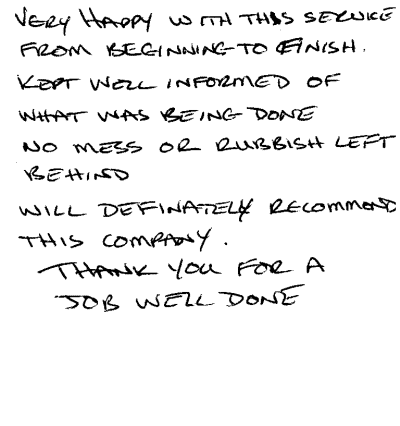 VERY HAPPY WITH THIS SERVICE
FROM BEGINNING TO FINISH.
KEPT WELL INFORMED OF
WHAT WAS BEING DONE
NO MESS OR RUBBISH LEFT
BEHIND
WILL DEFINATELY RECOMMEND
THIS COMPANY.
THANK YOU FOR A
JOB WELL DONE